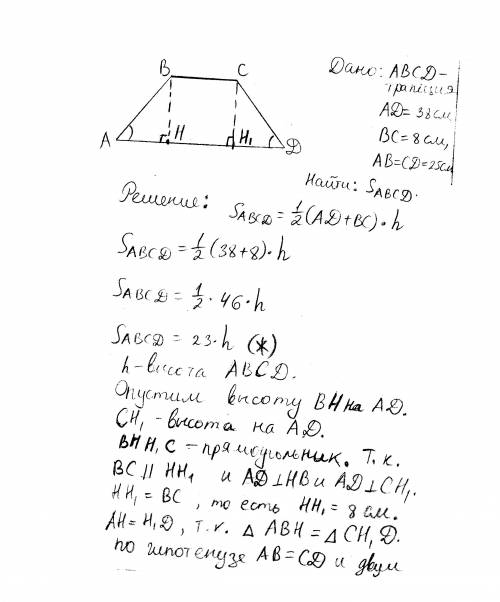 B C
A H H₁ D
Дано: ABCD-
трапеция
AD= 38см
BC= 8см,
AB=CD=25см
Найти: SABCD.
Решение:
SABCD = 1/2(AD+BC)·h
SABCD = 1/2(38+8)·h
SABCD = 1/2·46·h
SABCD = 23·h (*)
h-высота ABCD.
Опустим высоту BH на AD.
CH₁ - высота на AD.
BHH₁C - прямоугольник. Т.к.
BC || HH₁ и AD⊥HB и AD⊥CH₁.
HH₁ = BC, то есть HH₁ = 8 см.
AH = H₁D, т.к. △ ABH = △ CH₁D.
по гипотенузе AB=CD и двум